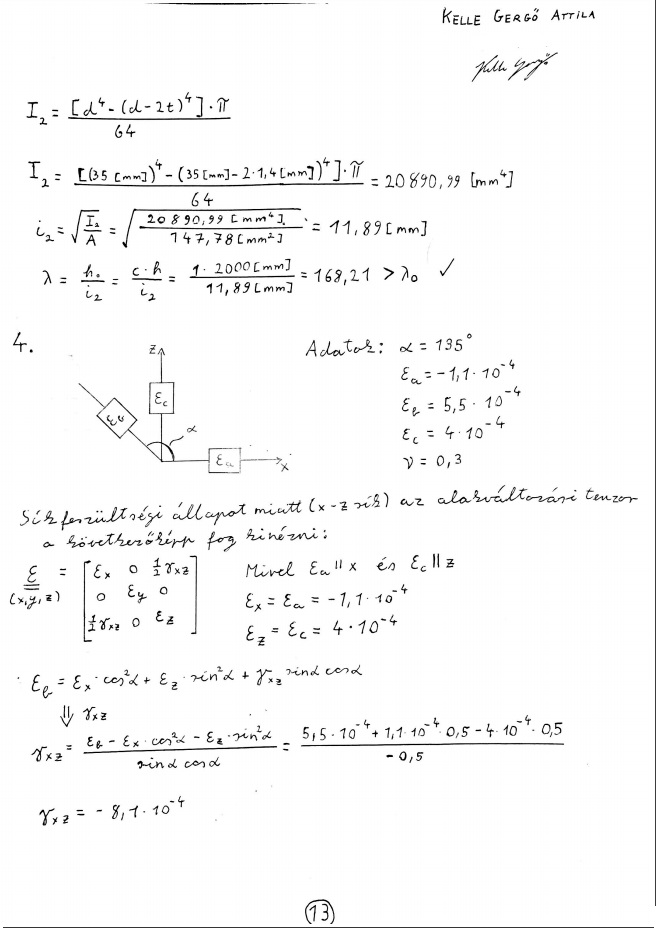 KELLE GERGŐ ATTILA
I₂ = [d⁴ - (d-2t)⁴]·π / 64
I₂ = [(35 [mm])⁴ - (35 [mm] - 2·1,4 [mm])⁴]·π / 64 = 20890,99 [mm⁴]
i₂ = √(I₂/A) = √(20890,99 [mm⁴] / 147,78 [mm²]) = 11,89 [mm]
λ = h₀/i₂ = c·h/i₂ = 1·2000 [mm] / 11,89 [mm] = 168,21 > λ₀ ✓
4.
z
ε_c
ε_b
α
ε_a
x
Adatok: α = 135°
ε_a = -1,1·10⁻⁴
ε_b = 5,5·10⁻⁴
ε_c = 4·10⁻⁴
ν = 0,3
Síkfeszültségi állapot miatt (x-z sík) az alakváltozási tenzor
a következőképp fog kinézni:
ε (x,y,z) = [ε_x 0 ½γ_xz
0 ε_y 0
½γ_xz 0 ε_z]
Mivel ε_a ∥ x és ε_c ∥ z
ε_x = ε_a = -1,1·10⁻⁴
ε_z = ε_c = 4·10⁻⁴
· ε_b = ε_x·cos²α + ε_z·sin²α + γ_xz sinα cosα
⇓ γ_xz
γ_xz = (ε_b - ε_x·cos²α - ε_z·sin²α) / (sinα cosα) = (5,5·10⁻⁴ + 1,1·10⁻⁴·0,5 - 4·10⁻⁴·0,5) / (-0,5)
γ_xz = -8,1·10⁻⁴
13